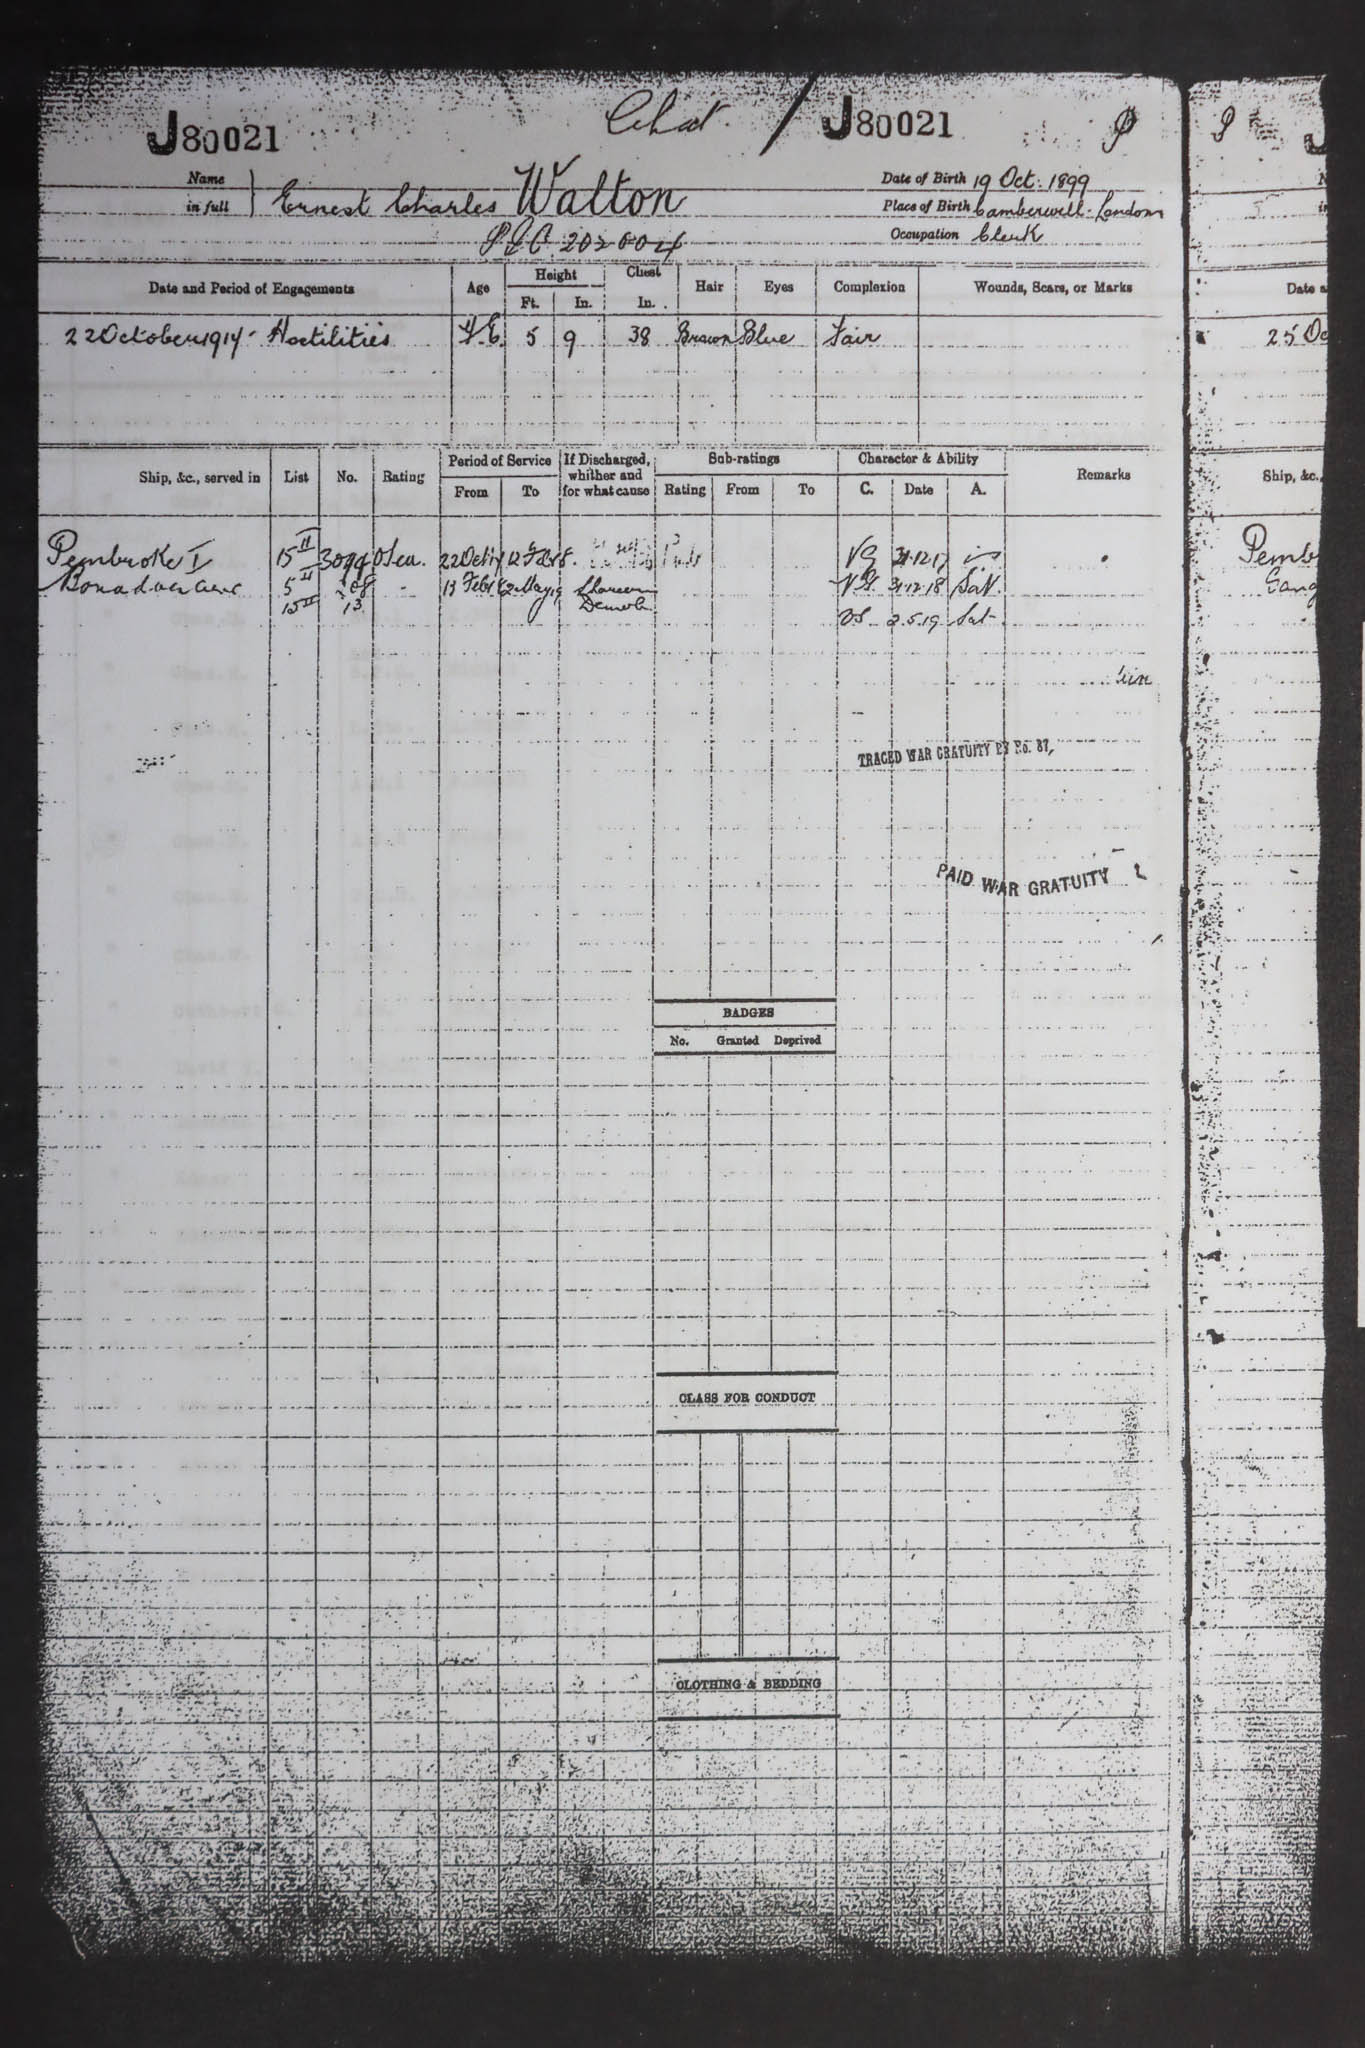 J80021 Chat. J80021 P
Name in full Ernest Charles Walton
Date of Birth 19 Oct. 1899
Place of Birth Camberwell. London
202604
Occupation Clerk
Date and Period of Engagements Age Height Ft. In. Chest In. Hair Eyes Complexion Wounds, Scars, or Marks
22 October 1917 - Hostilities 5 9 38 Brown Blue Fair
Ship, &c., served in List No. Rating Period of Service From To If Discharged, whither and for what cause Sub-ratings Rating From To Character & Ability C. Date A. Remarks
Pembroke I 15 II O Sea. VG 31.12.17
Bonadventure 5 II 13 Feby 2 May 19 Shoreham VG 31.12.18 Sat.
15 II 13 Demob VG 2.5.19 Sat
TRACED WAR GRATUITY
PAID WAR GRATUITY
BADGES
No. Granted Deprived
CLASS FOR CONDUCT
CLOTHING & BEDDING
P
Date a
25 Oc
Ship, &c.,
Pemb